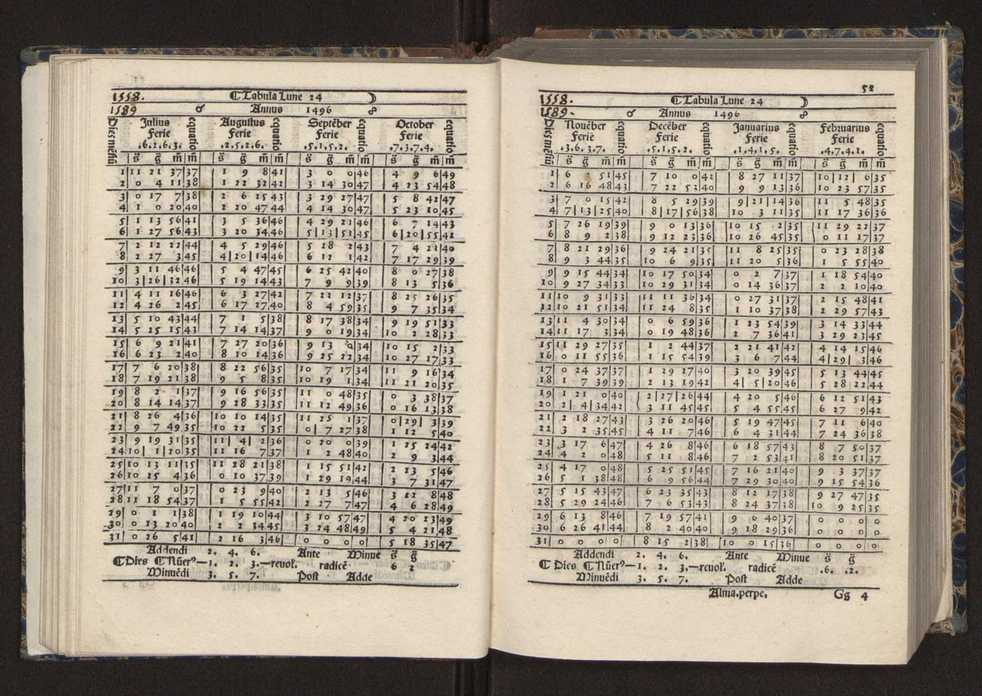 1558. ☾ Tabula Lune 24 ☽
1589 ♂ Annus 1496 ☍
Dies mensiũ Julius equatio Augustus equatio Septẽber equatio October equatio
ferie ferie ferie ferie
.6.2.6.3. .2.5.2.6. .5.1.5.2. .7.3.7.4.
s̃ g̃ m̃ m̃ s̃ g̃ m̃ m̃ s̃ g̃ m̃ m̃ s̃ g̃ m̃ m̃
1 11 21 37 37 1 9 8 41 3 0 0 46 4 9 6 49
2 0 4 11 38 1 22 32 42 3 14 30 47 4 23 54 48
3 0 17 7 38 2 6 15 43 3 29 27 47 5 8 42 47
4 1 0 20 40 2 20 47 44 4 14 30 47 5 23 10 45
5 1 13 56 41 3 5 36 46 4 29 21 46 6 7 14 43
6 1 27 56 43 3 20 34 46 5 13 51 45 6 20 55 42
7 2 12 22 44 4 5 29 46 5 28 2 43 7 4 21 40
8 2 27 3 45 4 20 14 46 6 12 1 42 7 17 29 39
9 3 11 46 46 5 4 47 45 6 25 42 40 8 0 27 38
10 3 26 32 46 5 19 14 43 7 9 9 39 8 13 5 36
11 4 11 16 46 6 3 27 42 7 22 12 37 8 25 26 35
12 4 26 2 45 6 17 17 40 8 4 59 35 9 7 35 34
13 5 10 43 44 7 1 5 38 8 17 38 34 9 19 51 33
14 5 25 15 43 7 14 14 37 9 0 19 34 10 2 28 33
15 6 9 21 41 7 27 20 36 9 13 0 34 10 15 2 33
16 6 23 2 40 8 10 14 36 9 25 22 34 10 27 17 33
17 7 6 20 38 8 22 56 35 10 7 17 34 11 9 16 34
18 7 19 21 38 9 5 8 35 10 19 1 34 11 21 20 35
19 8 2 1 37 9 16 56 35 11 0 48 35 0 3 38 37
20 8 14 14 37 9 28 33 35 11 12 49 36 0 16 13 38
21 8 26 4 36 10 10 14 35 11 25 1 37 0 29 3 39
22 9 7 49 35 10 22 5 35 0 7 27 38 1 12 5 40
23 9 19 31 35 11 4 2 36 0 20 0 39 1 25 24 42
24 10 1 20 35 11 16 7 37 1 2 48 40 2 9 3 44
25 10 13 11 35 11 28 21 38 1 15 51 42 2 23 5 46
26 10 25 4 36 0 10 37 39 1 29 19 44 3 7 31 47
27 11 7 0 37 0 23 9 40 2 13 5 46 3 22 8 48
28 11 18 54 37 1 5 55 42 2 27 7 47 4 6 28 49
29 0 1 1 38 1 19 10 44 3 10 57 47 4 20 23 49
30 0 13 20 40 2 2 34 45 3 24 48 49 5 4 21 48
31 0 26 5 41 2 16 3 46 0 0 0 0 5 18 35 47
Addendi 2. 4. 6. Ante Minue s̃ g̃
☾ Dies ☾ Nũer⁹—1. 2. 3.—reuol. radicẽ 6 2
Minuẽdi 3. 5. 7. Post Adde
52
1558. ☾ Tabula Lune 24 ☽
1589. ♂ Annus 1496 ☍
Dies mẽsiũ Nouẽber equatio Decẽber equatio Januarius equatio Februarius equatio
ferie ferie ferie ferie
.3.6.3.7. .1.5.1.5. .1.4.1.5. .4.7.4.1.
s̃ g̃ m̃ m̃ s̃ g̃ m̃ m̃ s̃ g̃ m̃ m̃ s̃ g̃ m̃ m̃
1 6 51 45 7 10 0 42 8 27 11 37 10 12 6 35
2 6 16 48 43 7 22 52 40 9 9 13 36 10 23 57 35
3 7 0 15 42 8 5 29 39 9 21 14 36 11 5 48 35
4 7 13 25 40 8 17 56 38 10 3 11 35 11 17 36 36
5 7 26 19 39 9 0 13 36 10 15 2 35 11 29 22 37
6 8 9 2 38 9 12 23 36 10 26 45 35 0 11 17 37
7 8 21 29 36 9 24 21 35 11 8 25 35 0 23 28 38
8 9 3 44 35 10 6 9 35 11 20 5 36 1 5 55 40
9 9 15 44 34 10 17 50 34 0 2 7 37 1 18 54 40
10 9 27 34 33 10 29 31 34 0 14 36 37 2 2 10 40
11 10 9 31 33 11 11 36 34 0 27 31 37 2 15 48 41
12 10 21 51 34 11 24 8 35 1 10 37 38 2 29 57 43
13 11 4 30 34 0 6 59 36 1 23 54 39 3 14 33 44
14 11 17 3 34 0 19 48 36 2 7 36 41 3 29 23 45
15 11 29 27 35 1 2 44 37 2 21 41 42 4 14 15 46
16 0 11 55 36 1 15 54 39 3 6 7 44 4 29 3 46
17 0 24 37 37 1 29 27 40 3 20 39 45 5 13 44 45
18 1 7 39 39 2 13 19 42 4 5 20 46 5 28 22 44
19 1 21 0 40 2 27 26 44 4 20 5 46 6 12 51 43
20 2 4 34 42 3 11 45 45 5 4 55 45 6 27 9 42
21 2 18 27 43 3 26 20 46 5 19 47 45 7 11 6 40
22 3 2 35 45 4 11 7 46 6 4 31 44 7 24 36 38
23 3 17 6 47 4 26 8 46 6 18 57 43 8 7 50 37
24 4 2 0 48 5 11 8 46 7 2 53 41 8 20 51 37
25 4 17 0 48 5 25 51 45 7 16 21 40 9 3 37 37
26 5 1 38 48 6 9 56 44 7 29 30 40 9 15 54 36
27 5 15 43 47 6 23 35 43 8 12 17 38 9 27 47 35
28 5 29 24 46 7 6 53 43 8 24 37 38 10 9 25 35
29 6 13 8 46 7 19 57 41 9 6 40 37 0 0 0 0
30 6 26 41 44 8 2 40 40 9 18 29 36 0 0 0 0
31 0 0 0 0 8 15 2 38 10 0 15 36 0 0 0 0
Addendi 2. 4. 6. Ante Minue s̃ g̃
☾ Dies ☾ Nũer⁹—1. 2. 3.—reuol. radicẽ .6. .2.
Minuẽdi 3. 5. 7. Post Adde
Alma.perpe. Gg 4